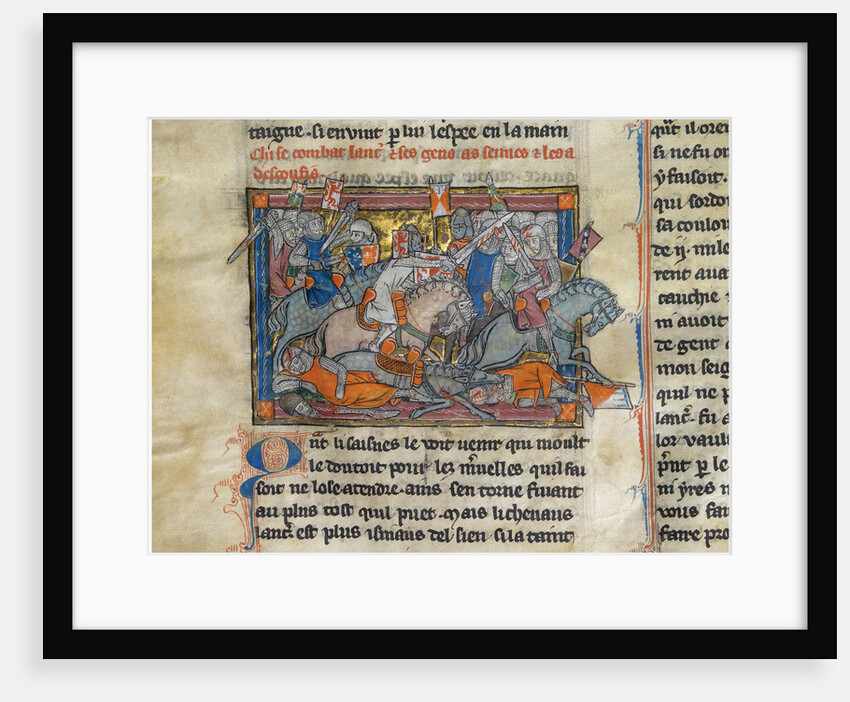 taigue. si en vint p lui lespee en la main
Chi se combat lanc & ses gens as sennes & les a
desconfis
Qnt li saisnes le voit uenir qui moult
le doutoit pour lez mueilles quil fai
soit ne lose atendre. ains sen torne fuiant
au plus tost quil puet. Mais li cheuaus
lanc est plus isniaus del sien si la taint
qnt il oren
si ne fu on
y faisoit.
qui sordo
sa coulou
de ij. mile
rent aua
cauchie
m auoit
te gent
mon seig
quil ne p
lanc. fu a
lor vaul
pnt p le
mi yres n
vous fan
faire pro